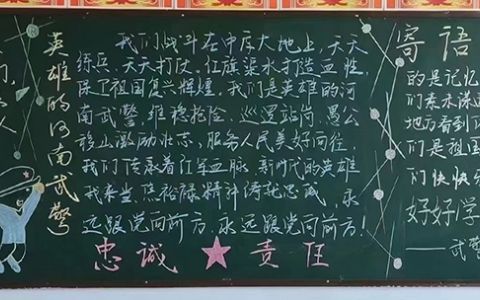 英雄的河南武警
我们战斗在中原大地上,天天
练兵、天天打仗,红旗渠水打造血性,
除了祖国复兴辉煌。我们是英雄的河
南武警,维稳抢险、巡逻站岗,愚公
移山激励壮志,服务人民美好向往
我们传承着红军血脉,新时代的英雄
我来当,焦裕禄精神铸就忠诚,永
远跟党向前方,永远跟党向前方!
忠诚★责任
寄语
的是记忆
们柔水深
地方看到
们是祖国
们快快乐
好好学
——武警